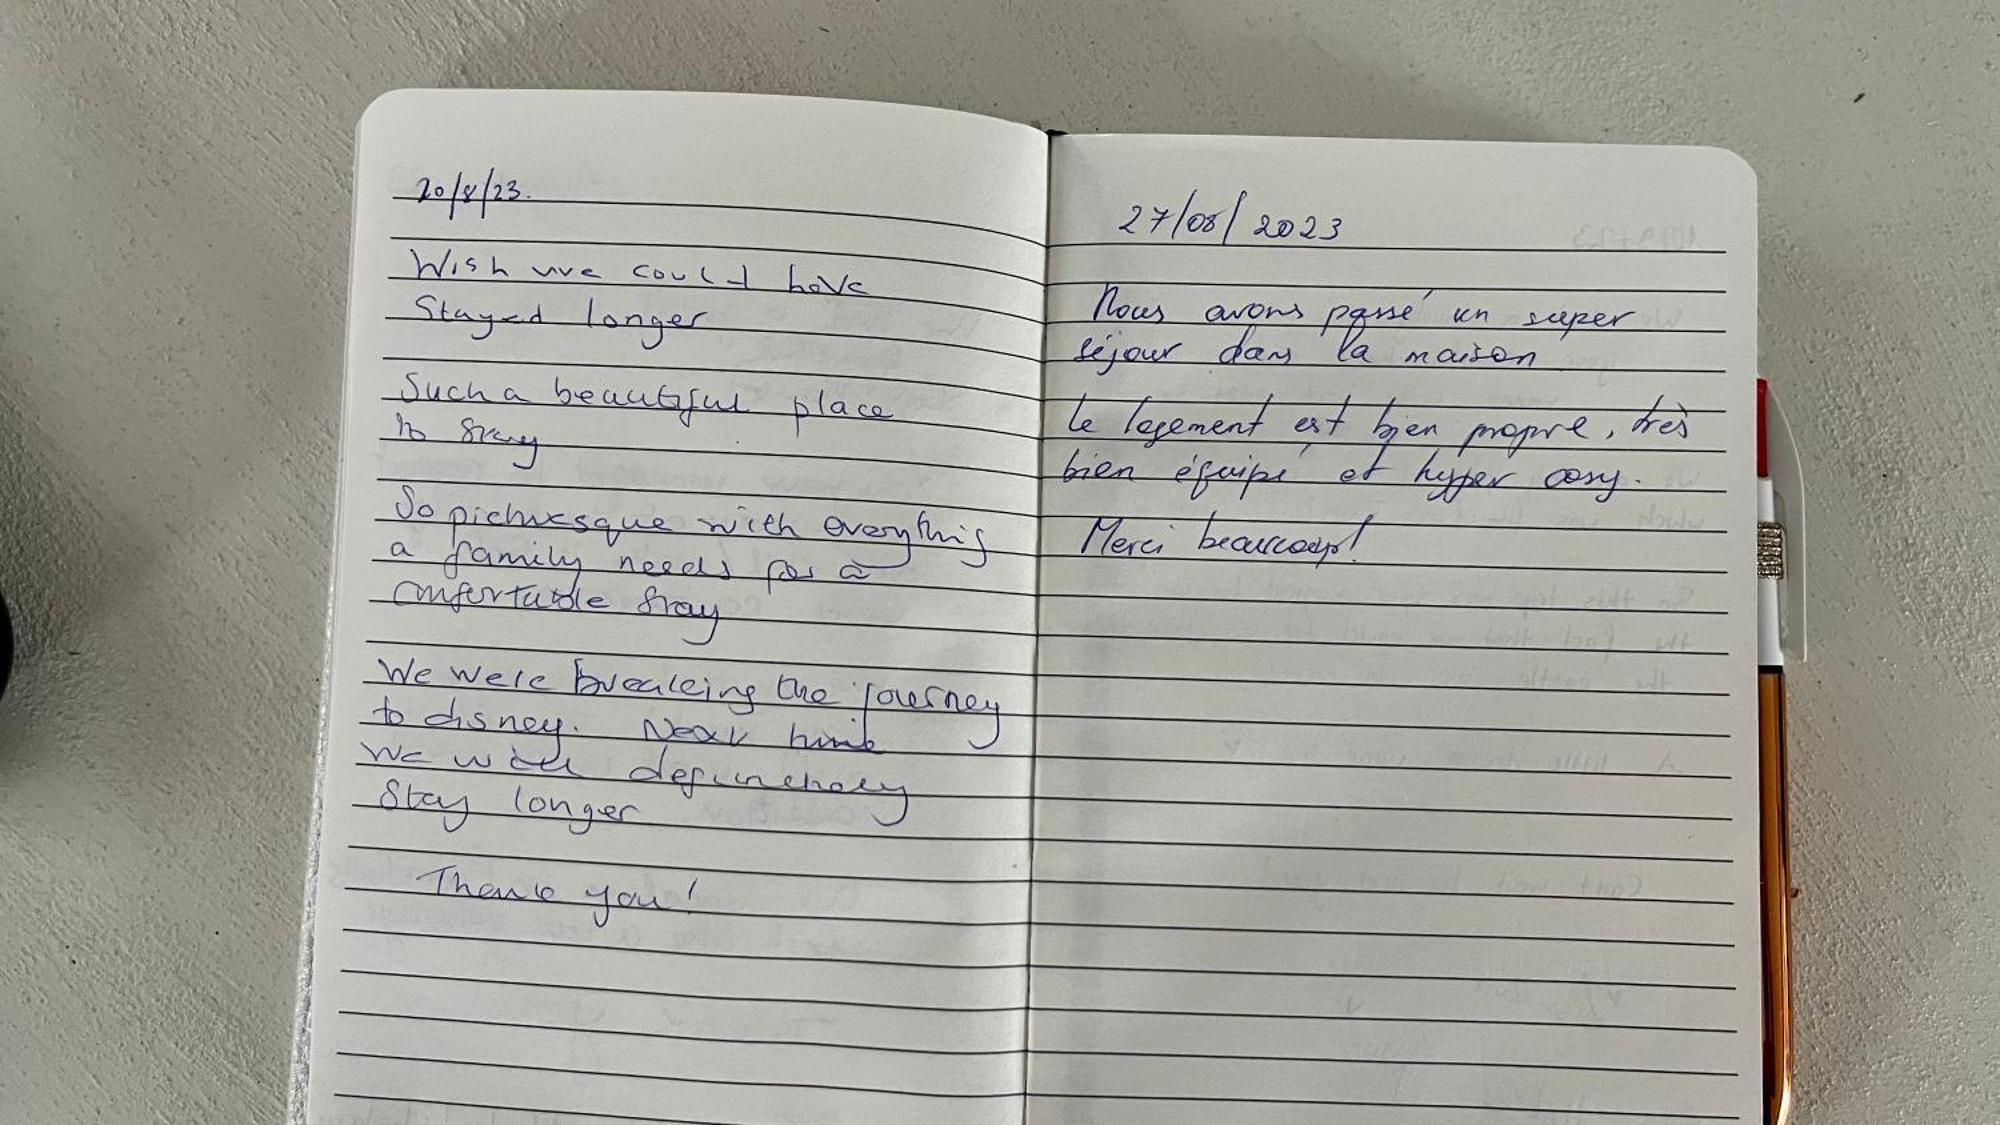 20/8/23.
Wish we could have
Stayed longer
Such a beautiful place
to stay
So picturesque with everything
a family needs for a
comfortable stay
We were breaking the journey
to disney. Next time
we will definitely
Stay longer
Thank you!
27/08/2023
Nous avons passé un super
séjour dans la maison
Le logement est bien propre, très
bien équipé et hyper cosy.
Merci beaucoup!